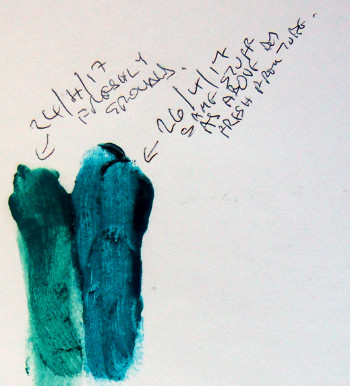 24/4/17
FRESHLY
GROUND.
26/4/17
SAME STUFF
AS ABOVE BUT
FRESH FROM TUBE.